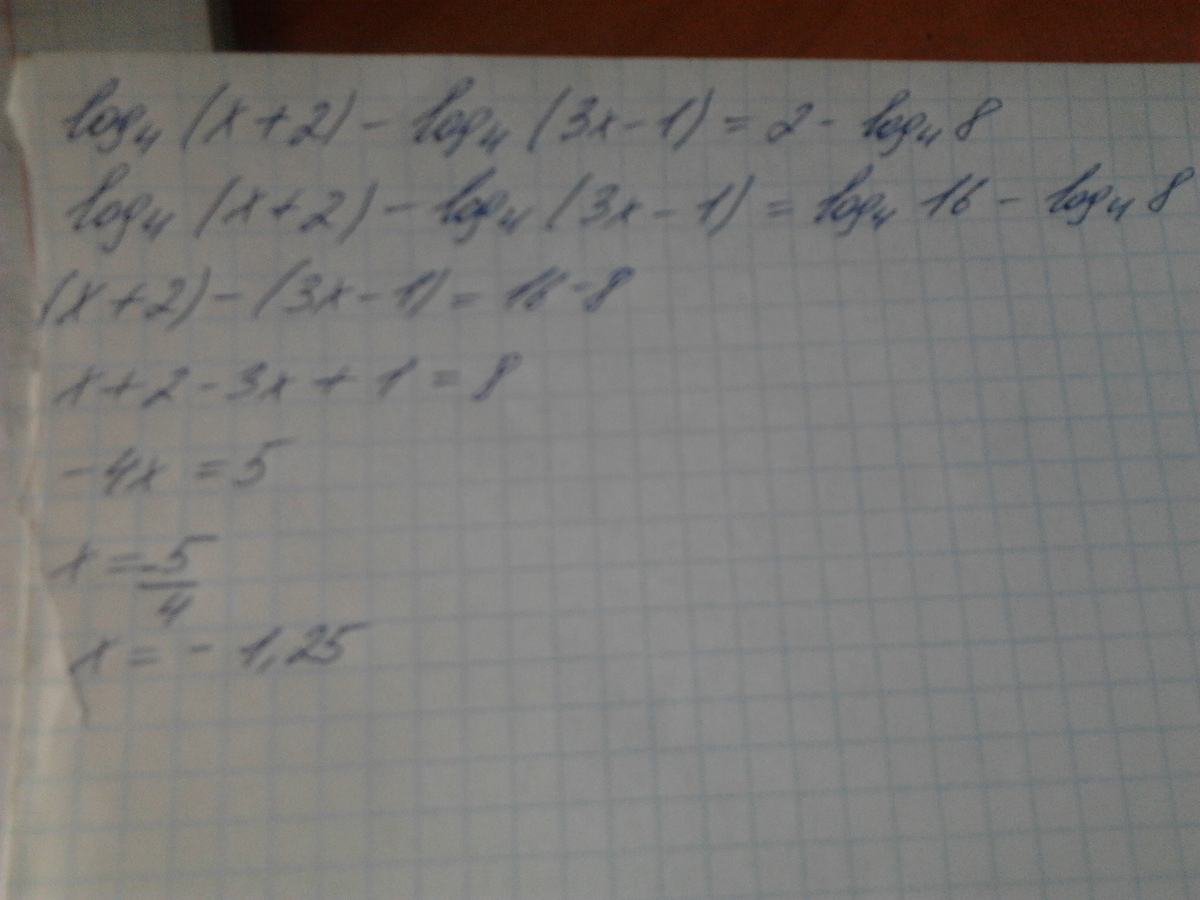 log₄ (x+2) - log₄ (3x-1) = 2 - log₄ 8
log₄ (x+2) - log₄ (3x-1) = log₄ 16 - log₄ 8
(x+2) - (3x-1) = 16-8
x+2-3x+1=8
-4x=5
x=-5/4
x=-1,25